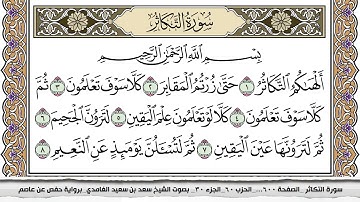 سورة التكاثر
بِسْمِ اللَّهِ الرَّحْمَٰنِ الرَّحِيمِ
أَلْهَاكُمُ التَّكَاثُرُ ١ حَتَّىٰ زُرْتُمُ الْمَقَابِرَ ٢ كَلَّا سَوْفَ تَعْلَمُونَ ٣ ثُمَّ
كَلَّا سَوْفَ تَعْلَمُونَ ٤ كَلَّا لَوْ تَعْلَمُونَ عِلْمَ الْيَقِينِ ٥ لَتَرَوُنَّ الْجَحِيمَ ٦
ثُمَّ لَتَرَوُنَّهَا عَيْنَ الْيَقِينِ ٧ ثُمَّ لَتُسْأَلُنَّ يَوْمَئِذٍ عَنِ النَّعِيمِ ٨
سورة التكاثر _الصفحة ٦٠٠... _الحزب ٦٠_ الجزء ٣٠_ بصوت الشيخ سعد بن سعيد الغامدي _برواية حفص عن عاصم